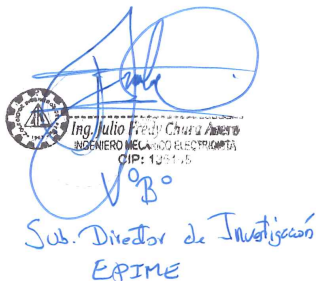 Ing. Julio Fredy Chura Acero
INGENIERO MECÁNICO ELECTRICISTA
CIP:
V°B°
Sub. Director de Investigación
EPIME